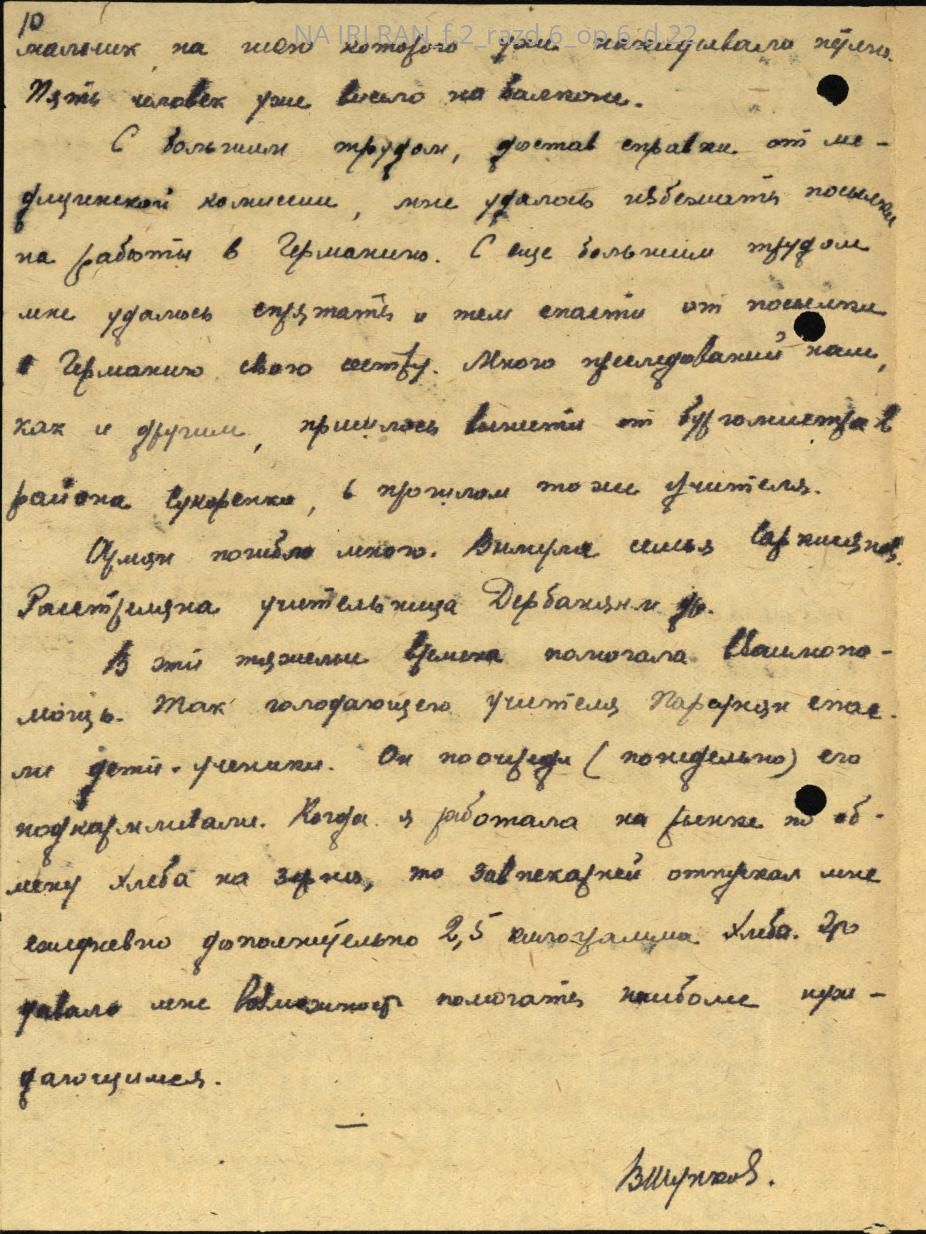 10
NA IRI RAN f.2_razd.6_op.6_d.22
мальчик на шею которого уже накидывали петлю.
Пять человек уже висело на балконе.
С большим трудом, достав справки от ме-
дицинской комиссии, мне удалось избежать посылки
на работы в Германию. С еще большим трудом
мне удалось спрятать и тем спасти от посылки
в Германию свою сестру. Много преследований нам,
как и другим, пришлось вынести от бургомистра
района, в прошлом тоже учителя.
Армян погибло много. Вымерла семья
Расстреляна учительница др.
В эти тяжелые времена помогала взаимопо-
мощь. Так голодающего учителя спас-
ли дети-ученики. Он поочереди (понедельно) его
подкармливали. Когда я работала на рынке по об-
мену хлеба на зерно, то завпекарней отпускал мне
ежедневно дополнительно 2,5 килограмма хлеба. Это
давало мне возможность помогать наиболее нуж-
дающимся.